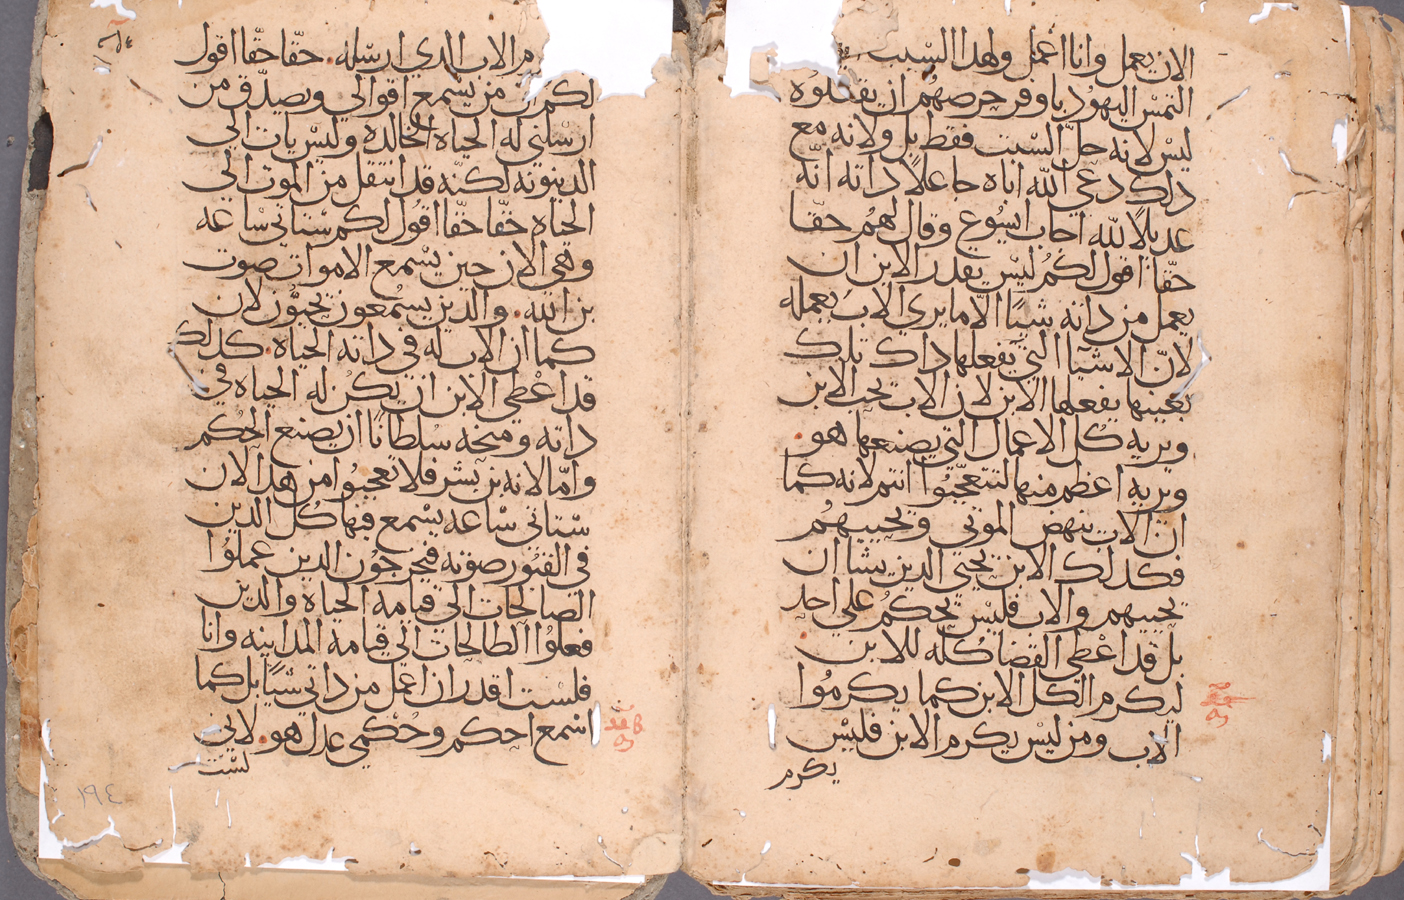 الان يعمل وانا اعمل ولهدا السّبب
التمسْ اليهوُد باوفر حرصهُم ان يقتلوه
ليسْ لانه حلّ السّبت فقط بل ولانه مع
دلك دعي الله اباه جاعلاً داته انّه
عديلاً لله اجاب ايسُوع وقال لهُم حقّا
حقّا اقول لكمُ ليسْ يقدر الابن ان
يعمل من داته شيًا الّا ما يري الاب يعمله
لانّ الاشيَا التي يفعلها داك تلك
بعينها يفعلها الابن لان الاب يحب الابن
ويريه كُل الاعمال التي يصنعها هو
ويريه اعظم منها لتتعجّبُوا انتم لانه كما
ان الاب ينهض الموتي ويحييهمُ
فكدلك الابن يحيي الدين يشا ان
يحييهم والاب فليسْ يحكمُ علي احد
بل قد اعْطي القضا كلّه للابن
ليكرم الكل الابن كما يكرموُا
الاب ومن ليسْ يكرم الابن فليسْ
يكرم
م الاب الدي ارسْله حقّا حقّا اقول
لكمُ ان من يسْمع اقوالي ويصدّق من
ارسْلني له الحياه الخالده وليسْ يات الي
الدينونه لكنّه قد انتقل من الموت الي
الحياه حقّا حقّا اقوُل لكم سْتاتي سْاعه
وهي الان حين يسْمع الاموات صوت
بن الله والدين يسمُعون يحيوُّن لان
كما ان الاب له في داته الحياه كدلك
قد اعْطي الابن ان يكُن له الحياه في
داته ومنحه سُلطانًا ان يصنع الحُكم
وامّا لانه بن بشر فلا تعجبُوا من هدا لان
سْتاتي سْاعه يسْمع فيها كُل الدين
في القبُور صوته فيخرجوُن الدين عملوُا
الصالحات الي قيامة الحياه والدين
فعلوُا الطالحات الي قيامة المداينه وانا
فلسْت اقدر ان اعمل من داتي شيًا بل كما
اسْمع احكم وحُكمي عدل هو لاني
لسْت
١٩٤